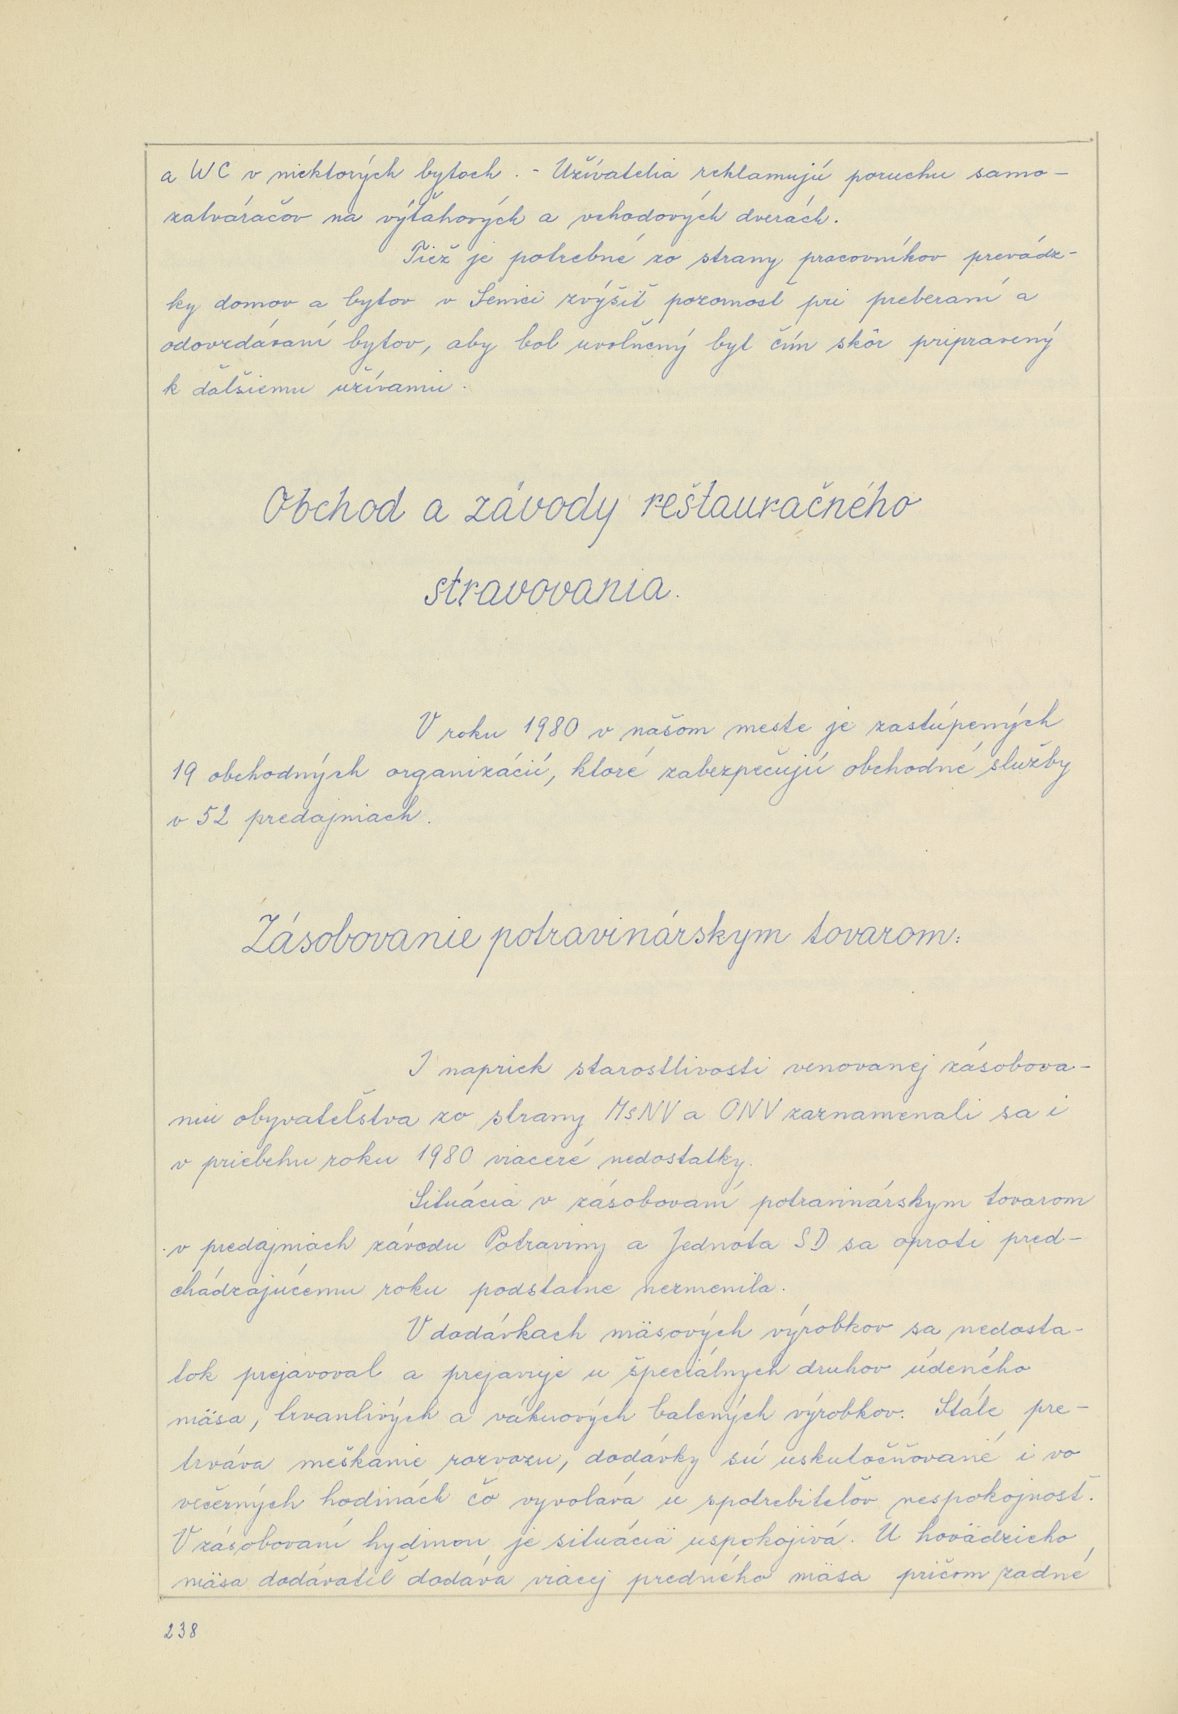 a WC v niektorých bytoch. - Užívatelia reklamujú poruchu samo-
zatváračov na výťahových a vchodových dverách.
Tiež je potrebné zo strany pracovníkov prevádz-
ky domov a bytov v Senici zvýšiť pozornosť pri preberaní a
odovzdávaní bytov, aby bol uvoľnený byt čím skôr pripravený
k ďalšiemu užívaniu.
Obchod a závody reštauračného
stravovania.
V roku 1980 v našom meste je zastúpených
19 obchodných organizácií, ktoré zabezpečujú obchodné služby
v 52 predajniach.
Zásobovanie potravinárskym tovarom:
I napriek starostlivosti venovanej zásobova-
niu obyvateľstva zo strany MsNV a ONV zaznamenali sa i
v priebehu roku 1980 viaceré nedostatky.
Situácia v zásobovaní potravinárskym tovarom
v predajniach závodu Potraviny a Jednota SD sa oproti pred-
chádzajúcemu roku podstatne nezmenila.
V dodávkach mäsových výrobkov sa nedosta-
tok prejavoval a prejavuje u špeciálnych druhov údeného
mäsa, trvanlivých a vákuových balených výrobkov. Stále pre-
trváva meškanie rozvozu, dodávky sú uskutočňované i vo
večerných hodinách čo vyvoláva u spotrebiteľov nespokojnosť.
V zásobovaní hydinou je situácia uspokojivá. U hovädzieho
mäsa dodávateľ dodáva viacej predného mäsa pričom zadné
238